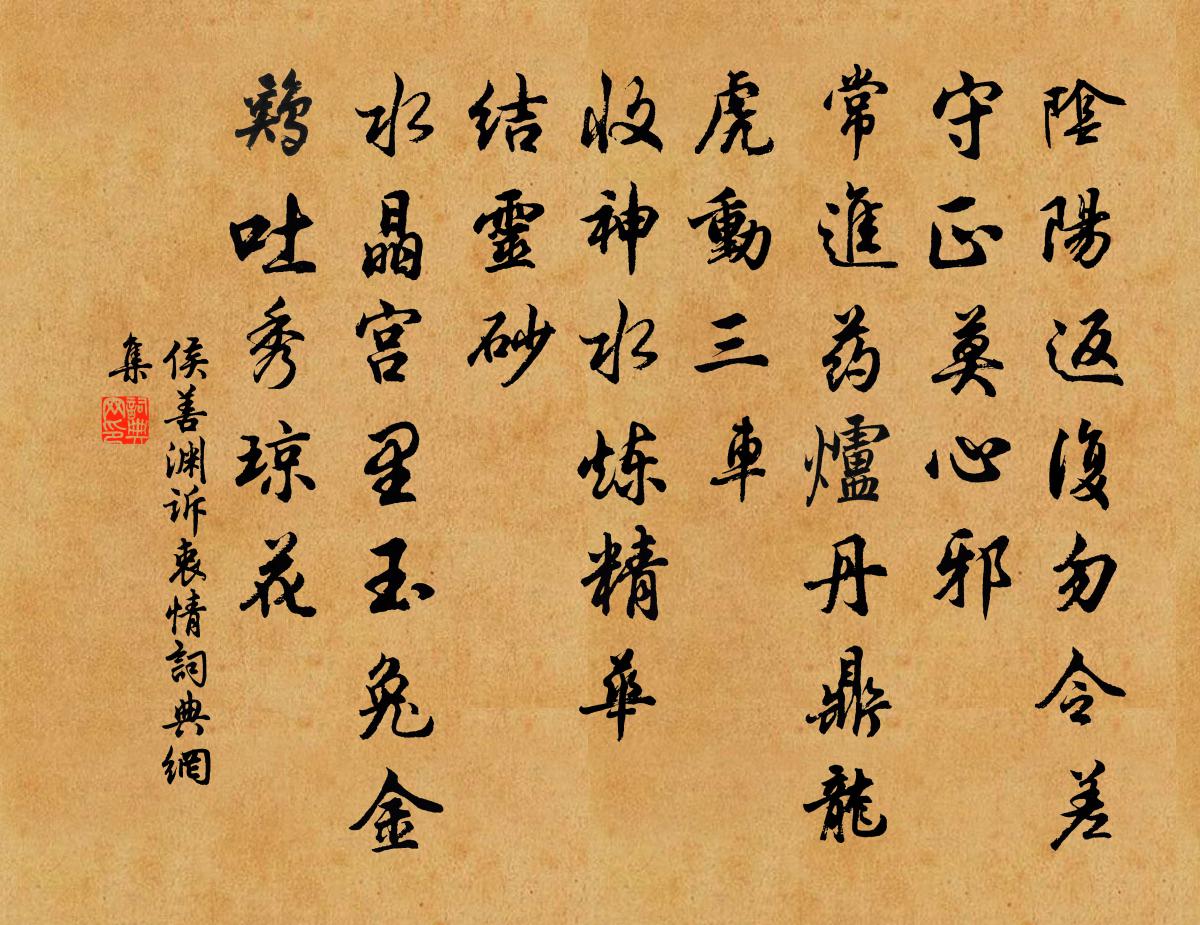 陰陽返復勿令差
守正莫心邪
常進药爐丹鼎龍
虎動三車
收神水炼精華
结靈砂
水晶宫里玉兔金
鷄吐秀琼花
侯善渊诉衷情詞典網
集
詞典
网印